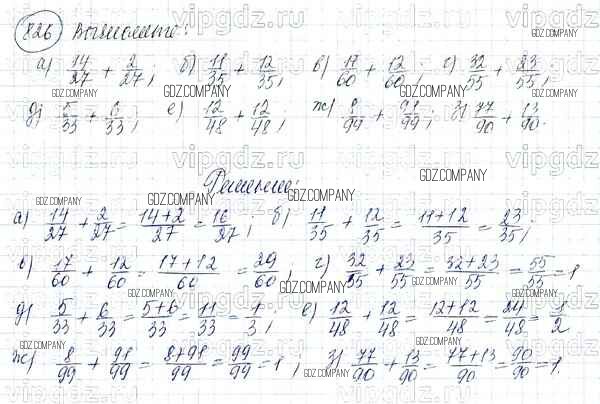 826 Вычислите:
а) 14/27 + 2/27; б) 11/35 + 12/35; в) 17/60 + 12/60; г) 32/55 + 23/55;
д) 5/33 + 6/33; е) 12/48 + 12/48; ж) 8/99 + 98/99; з) 77/90 + 13/90.
Решение:
а) 14/27 + 2/27 = 14+2/27 = 16/27; б) 11/35 + 12/35 = 11+12/35 = 23/35;
в) 17/60 + 12/60 = 17+12/60 = 29/60; г) 32/55 + 23/55 = 32+23/55 = 55/55 = 1
д) 5/33 + 6/33 = 5+6/33 = 11/33 = 1/3; е) 12/48 + 12/48 = 12+12/48 = 24/48 = 1/2
ж) 8/99 + 98/99 = 8+98/99 = 99/99 = 1; з) 77/90 + 13/90 = 77+13/90 = 90/90 = 1.
vipgdz.ru
GDZ.COMPANY